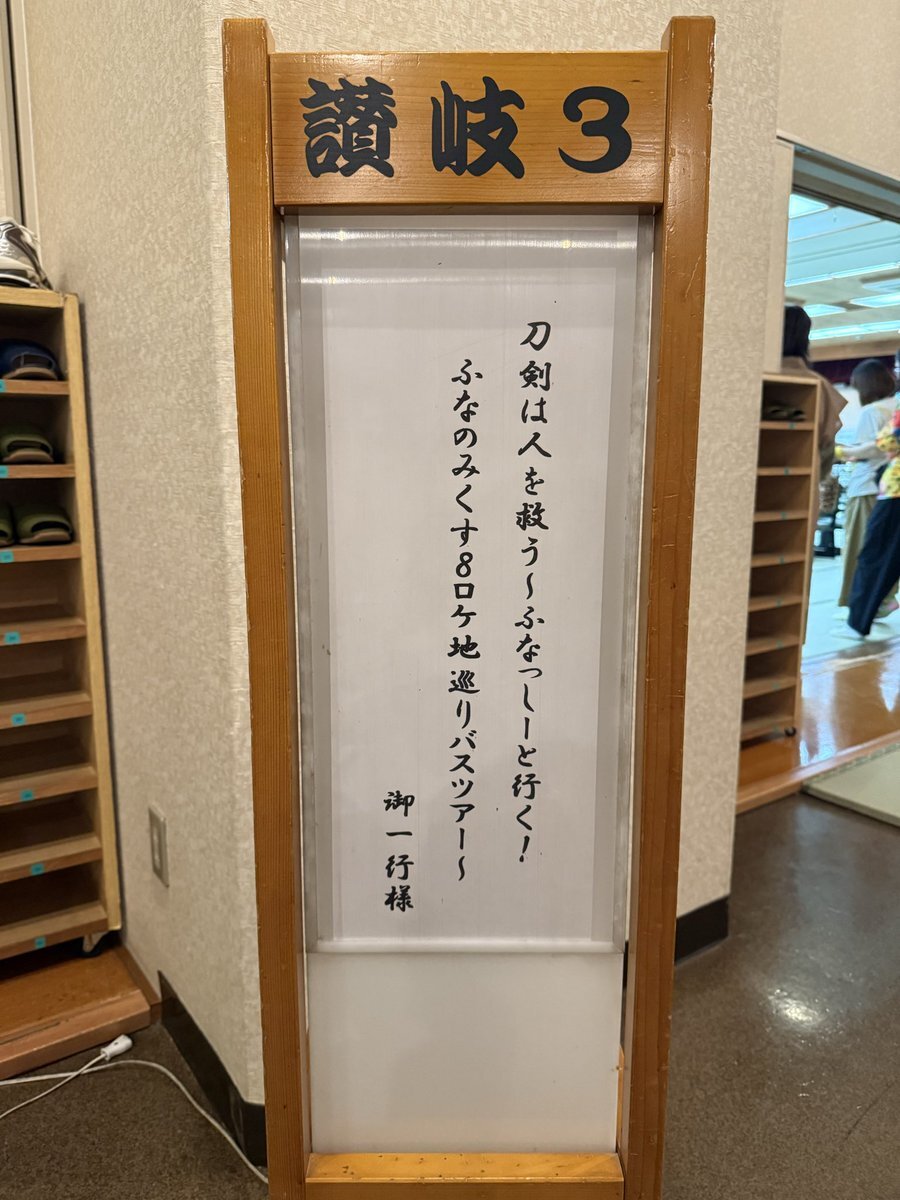 讃岐3
刀剣は人を救う〜ふなっしーと行く!
ふなのみくす8ロケ地巡りバスツアー〜
御一行様